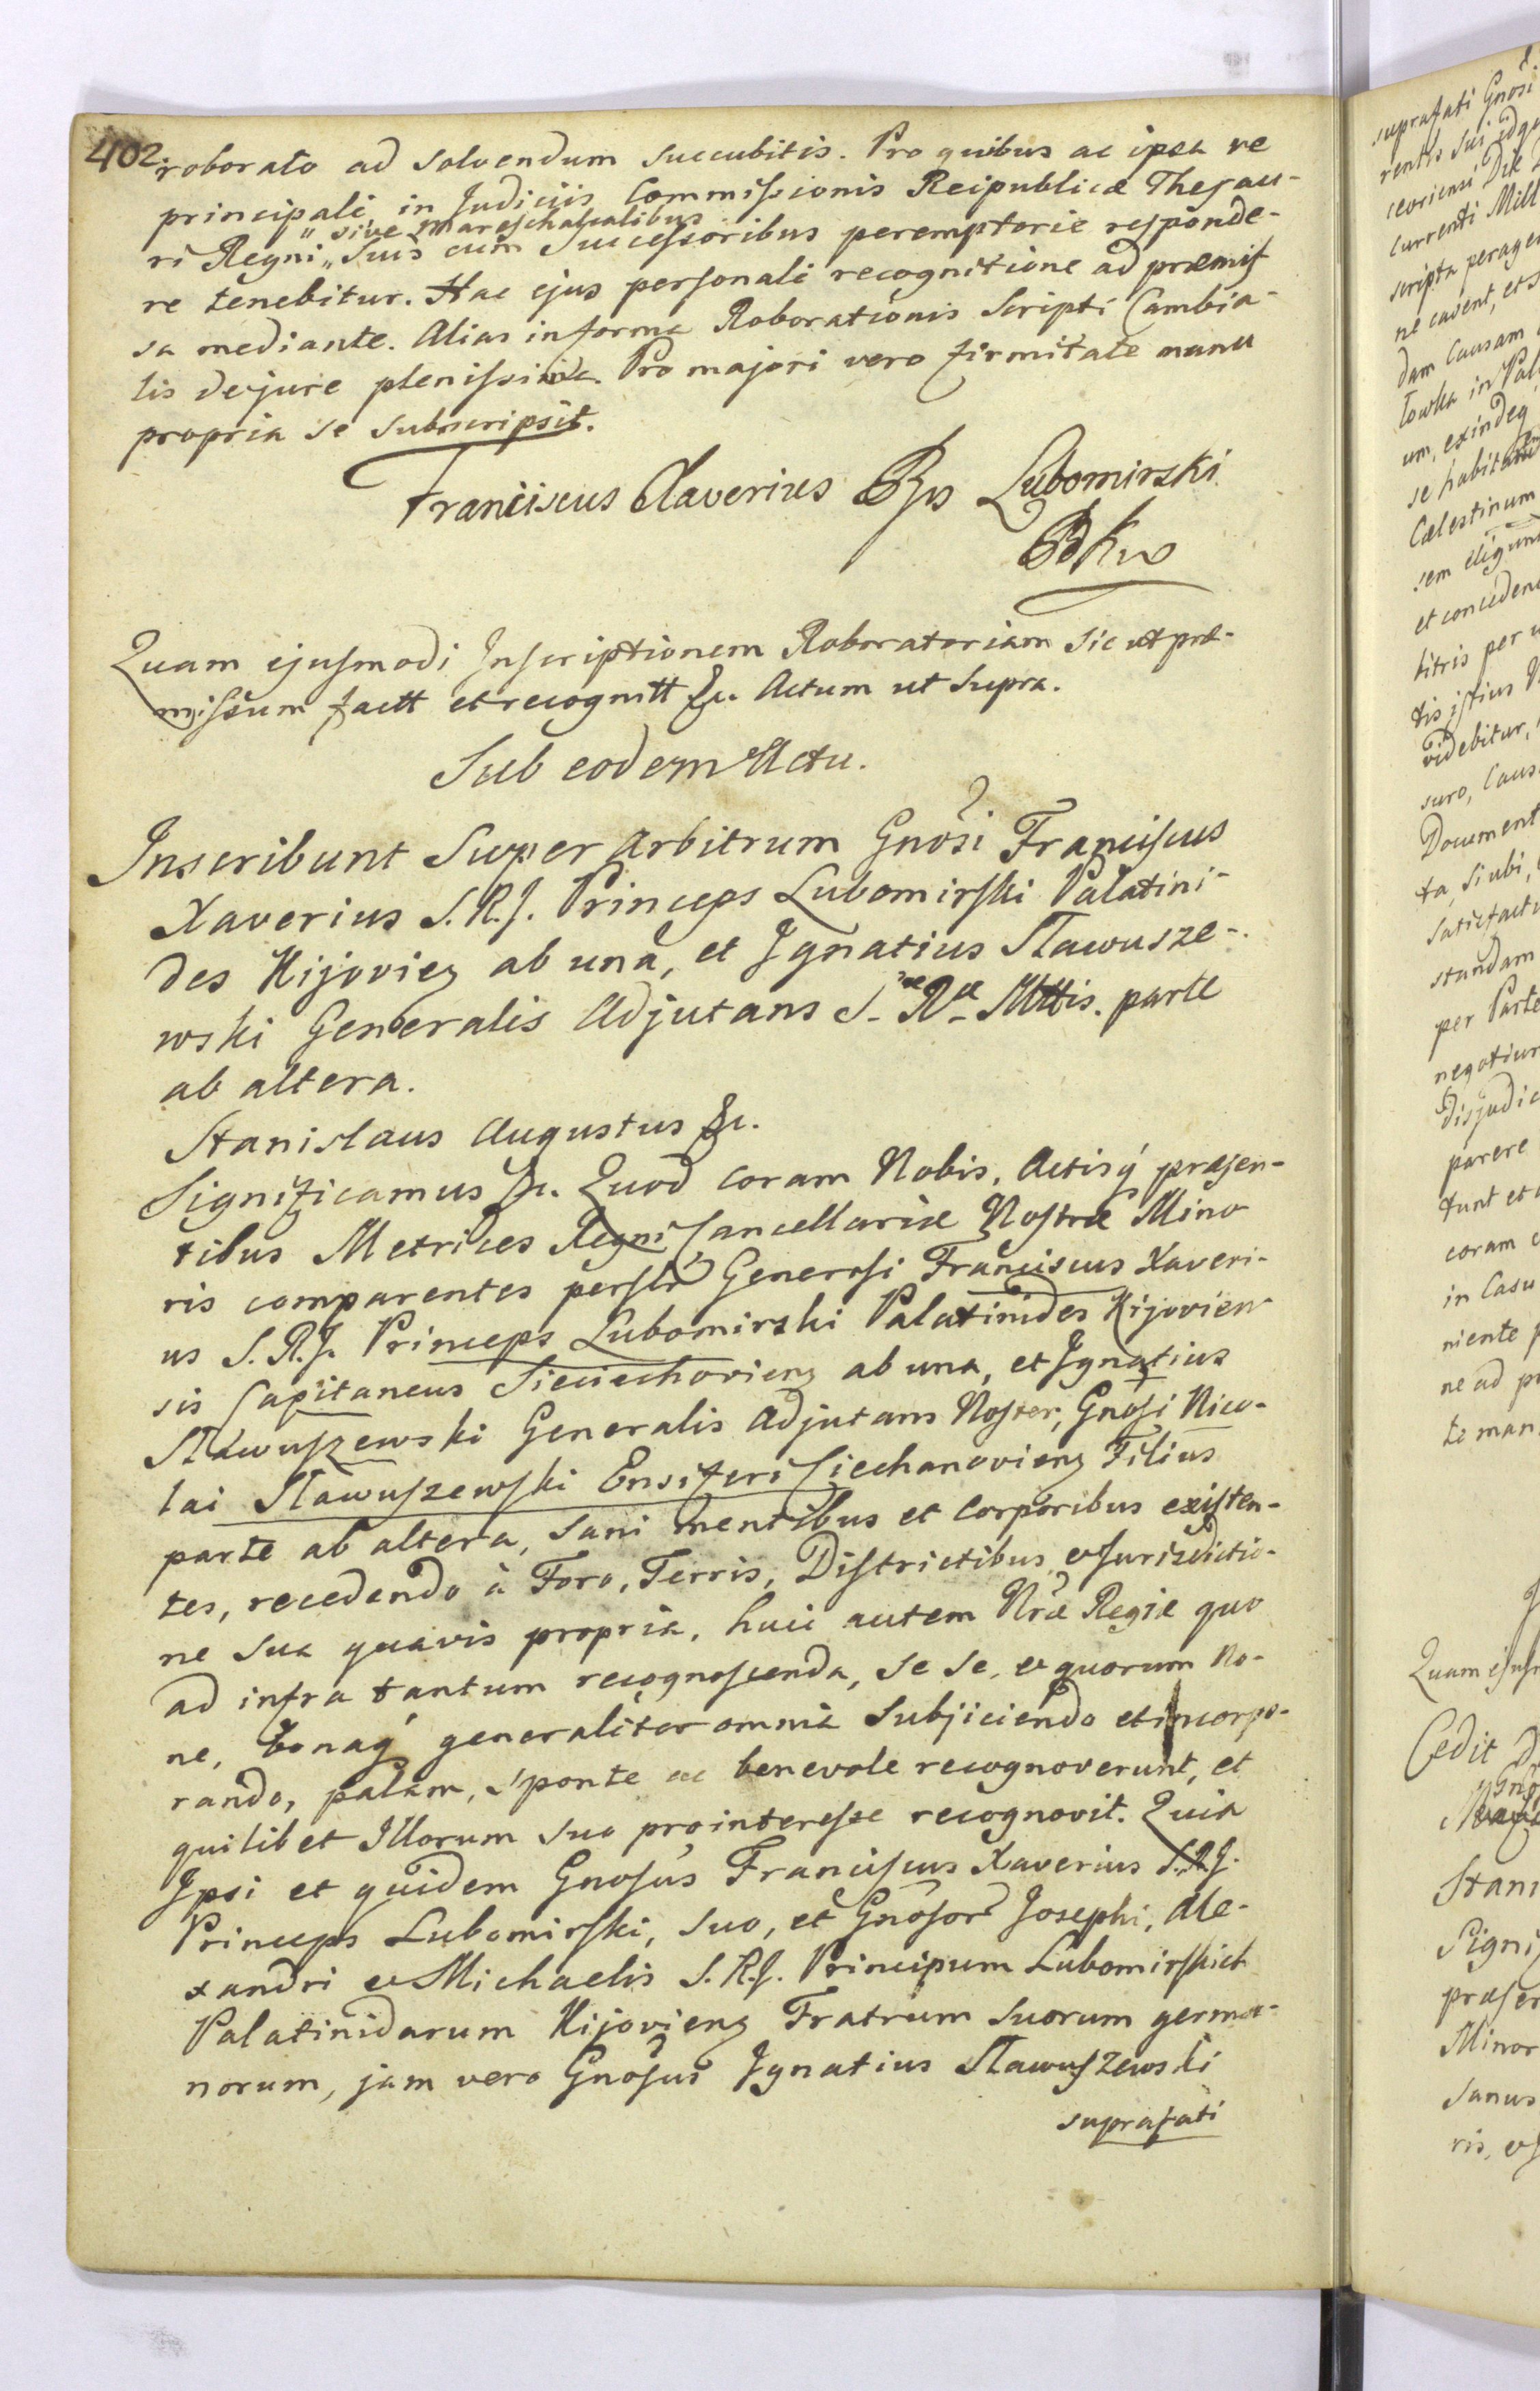 402.
roborato ad solvendum succubitis. Pro quibus ac ipsa re
principali, in Judiciis Commissionis Reipublicæ Thesau-
„ sive Mareschalcalibus
ri Regni „ suis cum Successoribus peremptorie responde-
re tenebitur. Hac ejus personali recognitione ad præmis
sa mediante. Alias in forma Roborationis Scripti Cambia-
lis de jure plenissima. Pro majori vero firmitate manu
propria se subscripsit.
Franciscus Xaverius Lubomirski
Quam ejusmodi Inscriptionem Roboratoriam sic ut præ-
missum factt et recognitt &c. Actum ut supra.
Sub eodem Actu.
Inscribunt Super Arbitrum Gnosi Franciscus
Xaverius S. R. J. Princeps Lubomirski Palatini-
des Kijovien ab una, et Ignatius Sławusze-
wski Generalis Adjutans S. Ræ Mttis. parte
ab altera.
Stanislaus Augustus &c.
Significamus &c. Quod coram Nobis, Actisq præsen-
tibus Metrices Regni Cancellariæ Nostræ Mino
ris comparentes persłr Generosi Franciscus Xaveri-
us S. R. J. Princeps Lubomirski Palatinides Kijovien
sis Capitaneus Sieciechovien ab una, et Ignatius
Sławuszewski Generalis Adjutans Noster, Gnosi Nico-
lai Sławuszewski Ensiferi Ciechanovien Filius
parte ab altera, sani mentibus et corporibus existen-
tes, recedendo à Foro, Terris, Districtibus, et Jurisdictio-
ne sua quavis propria, huic autem Nræ Regiæ quo
ad infra tantum recognoscenda, se se, et quorum No-
ne, bonaq generaliter omnia subjiciendo et incorpo-
rando, palam, sponte ac benevole recognoverunt, et
quilibet Illorum suo pro interesse recognovit. Quia
Ipsi et quidem Gnosus Franciscus Xaverius S. R. J.
Princeps Lubomirski, suo, et Gnosor Josephi, Ale-
xandri et Michaelis S. R. J. Principum Lubomirskich
Palatinidarum Kijovien Fratrum suorum germa-
norum, jam vero Gnosus Ignatius Sławuszewski
suprafati